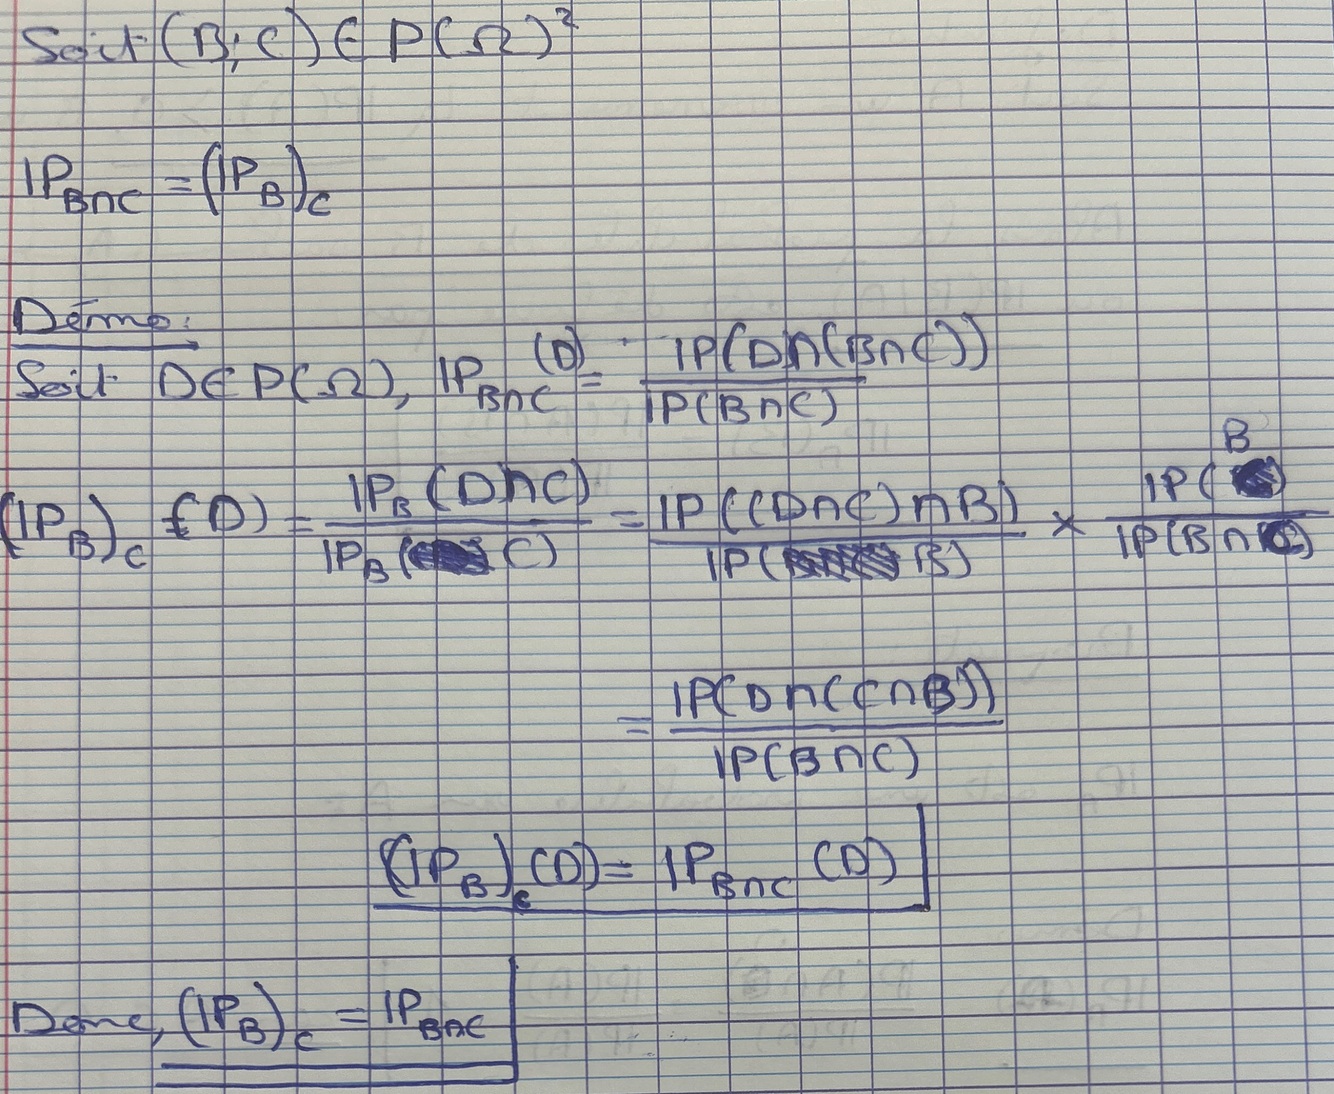 Soit (B;C) ∈ P(Ω)²
IP_{B∩C} = (IP_B)_C
Démo:
Soit D ∈ P(Ω), IP_{B∩C}(D) = IP(D∩(B∩C)) / IP(B∩C)
(IP_B)_C (D) = IP_B(D∩C) / IP_B(C) = IP((D∩C)∩B) / IP(B) × IP(B) / IP(B∩C)
= IP(D∩(C∩B)) / IP(B∩C)
(IP_B)_C(D) = IP_{B∩C}(D)
Donc, (IP_B)_C = IP_{B∩C}